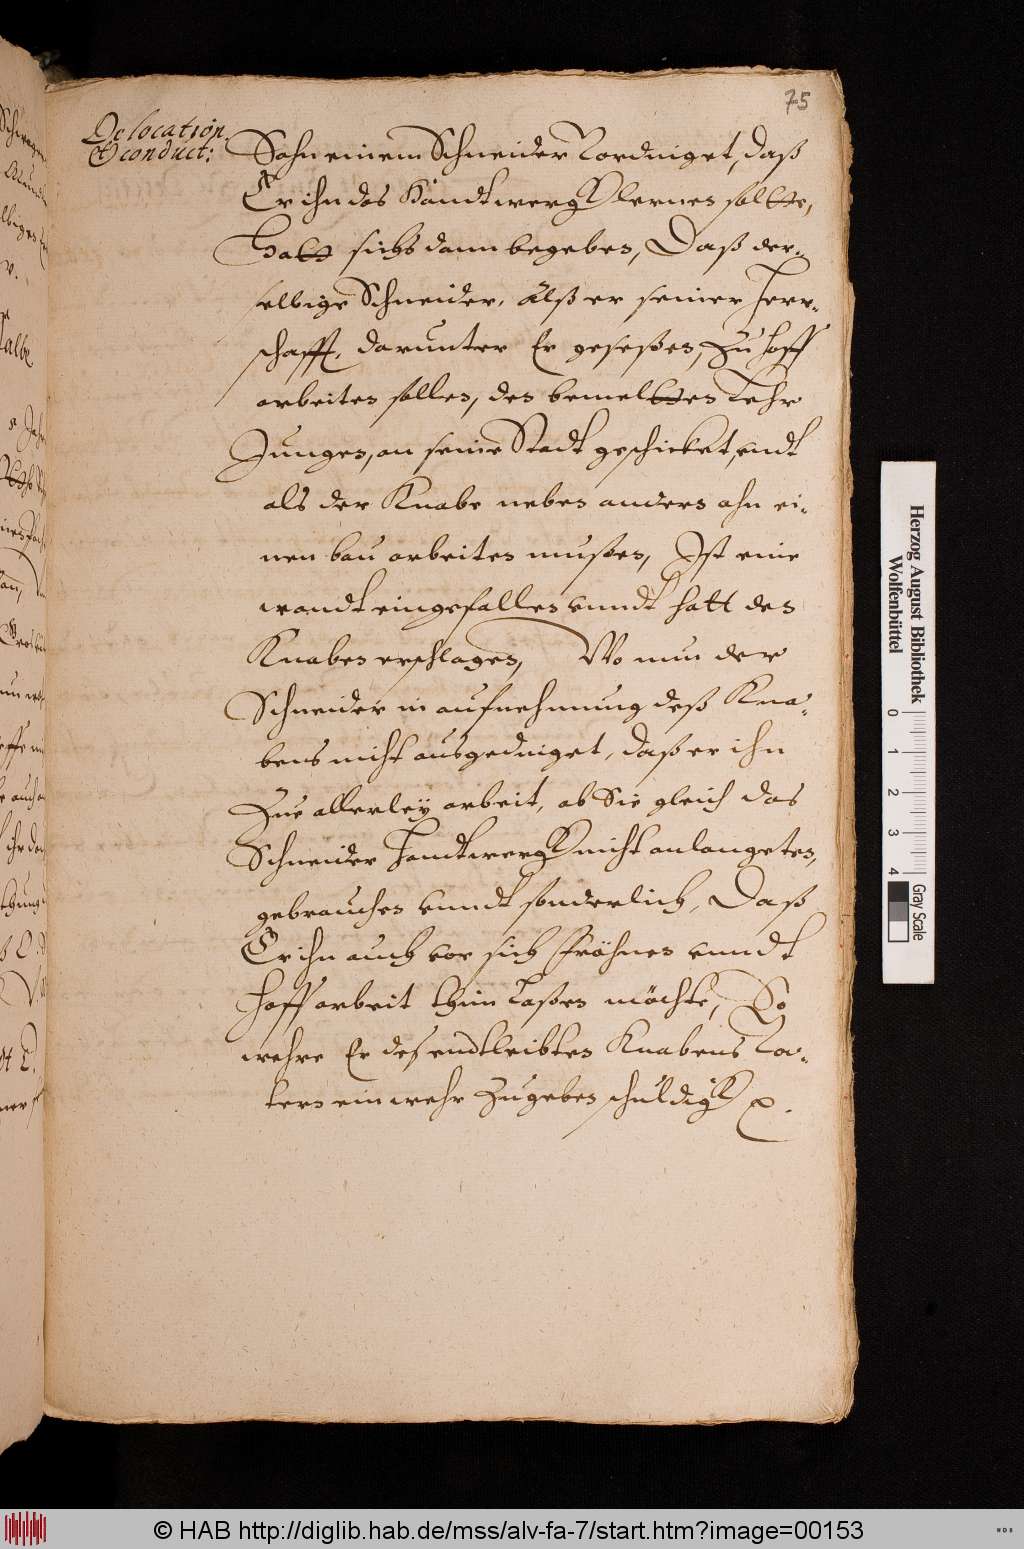 75
De location.
& conduct:
Sohn einem Schneider Vordinget, daß
Er ihn das Handtwergk lernen soltte,
Hatt sichs dann begeben, Daß der-
selbige Schneider, Alß er seiner Herr-
schafft, darunter Er geseßen, zu hoff
arbeiten sollen, den bemeltten Lehr
Jungen, an seine Stadt geschicket, undt
als der Knabe neben andern ahn ei-
nen bau arbeiten mußen, Ist eine
wandt eingefallen unndt hatt den
Knaben erschlagen, Wo nun der
Schneider in aufnehmung deß Kna-
bens nicht ausgedinget, daß er ihn
Zue allerley arbeit, ob Sie gleich das
Schneider Handtwergk nicht anlangeten,
gebrauchen unndt sonderlich, Daß
Er ihn auch vor sich fröhnen unndt
hoff arbeit thun laßen möchte, So
wehre Er des entleibten Knabens Va-
tern ein wehr Zugeben schuldigk
Herzog August Bibliothek
Wolfenbüttel
0 1 2 3 4
Gray Scale
© HAB http://diglib.hab.de/mss/alv-fa-7/start.htm?image=00153